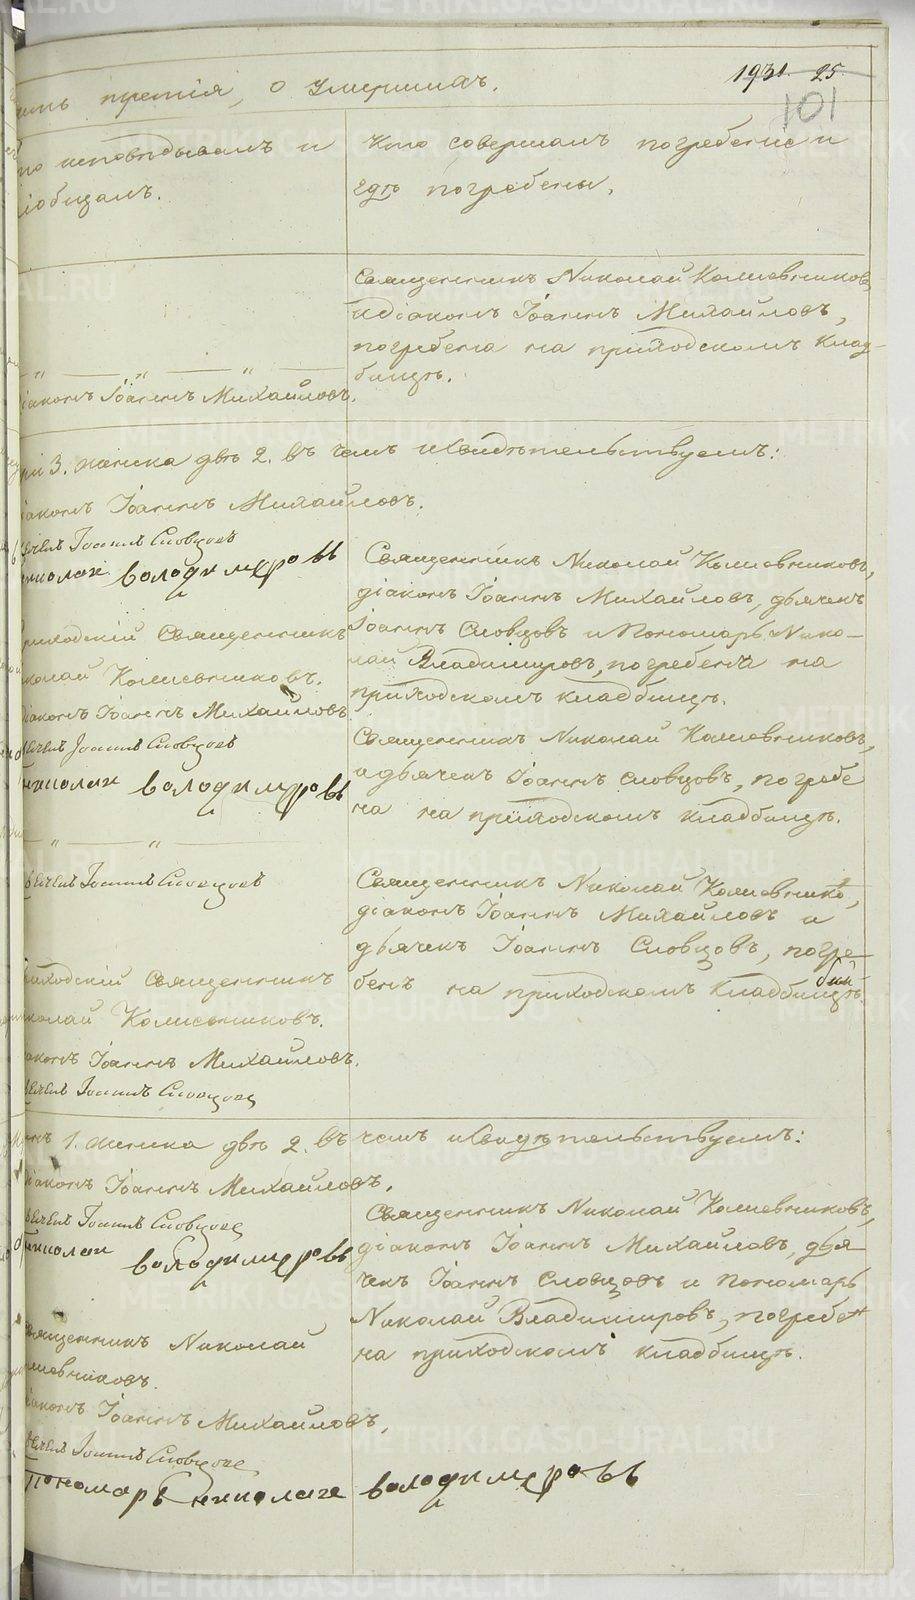 третія, о умершихъ.
1931. 25.
101
исповѣдывалъ и
пріобщалъ.
Кто совершалъ погребеніе и
гдѣ погребены.
Священникъ Николай
и діаконъ Іоаннъ Михайловъ,
погребена на приходскомъ клад-
бищѣ.
діаконъ Іоаннъ Михайловъ.
3. женска двѣ 2. въ чемъ и свидѣтельствуемъ:
діаконъ Іоаннъ Михайловъ.
дьячекъ Іоаннъ Словцовъ
николаи володимеровъ
Священникъ Николай
діаконъ Іоаннъ Михайловъ, дьячекъ
Іоаннъ Словцовъ и Пономарь Нико-
лай Владимировъ, погребена на
приходскомъ кладбищѣ.
приходскій Священникъ
Николай
діаконъ Іоаннъ Михайловъ
дьячекъ Іоаннъ Словцовъ
николаи володимеровъ
Священникъ Николай
и дьячекъ Іоаннъ Словцовъ, погребе
на на приходскомъ кладбищѣ.
дьячекъ Іоаннъ Словцовъ
Священникъ Николай
діаконъ Іоаннъ Михайловъ и
дьячекъ Іоаннъ Словцовъ, погре-
бенъ на приходскомъ кладбищѣ.
приходскій Священникъ
Николай
діаконъ Іоаннъ Михайловъ.
дьячекъ Іоаннъ Словцовъ
1. женска двѣ 2. въ чемъ и свидѣтельствуемъ:
діаконъ Іоаннъ Михайловъ.
дьячекъ Іоаннъ Словцовъ
николаи володимеровъ
Священникъ Николай
діаконъ Іоаннъ Михайловъ, дья
чекъ Іоаннъ Словцовъ и пономарь
Николай Владимировъ, погребен
на приходскомъ кладбищѣ.
Священникъ Николай
діаконъ Іоаннъ Михайловъ,
дьячекъ Іоаннъ Словцовъ
пономарь николаи володимеровъ
METRIKI.GASO-URAL.RU